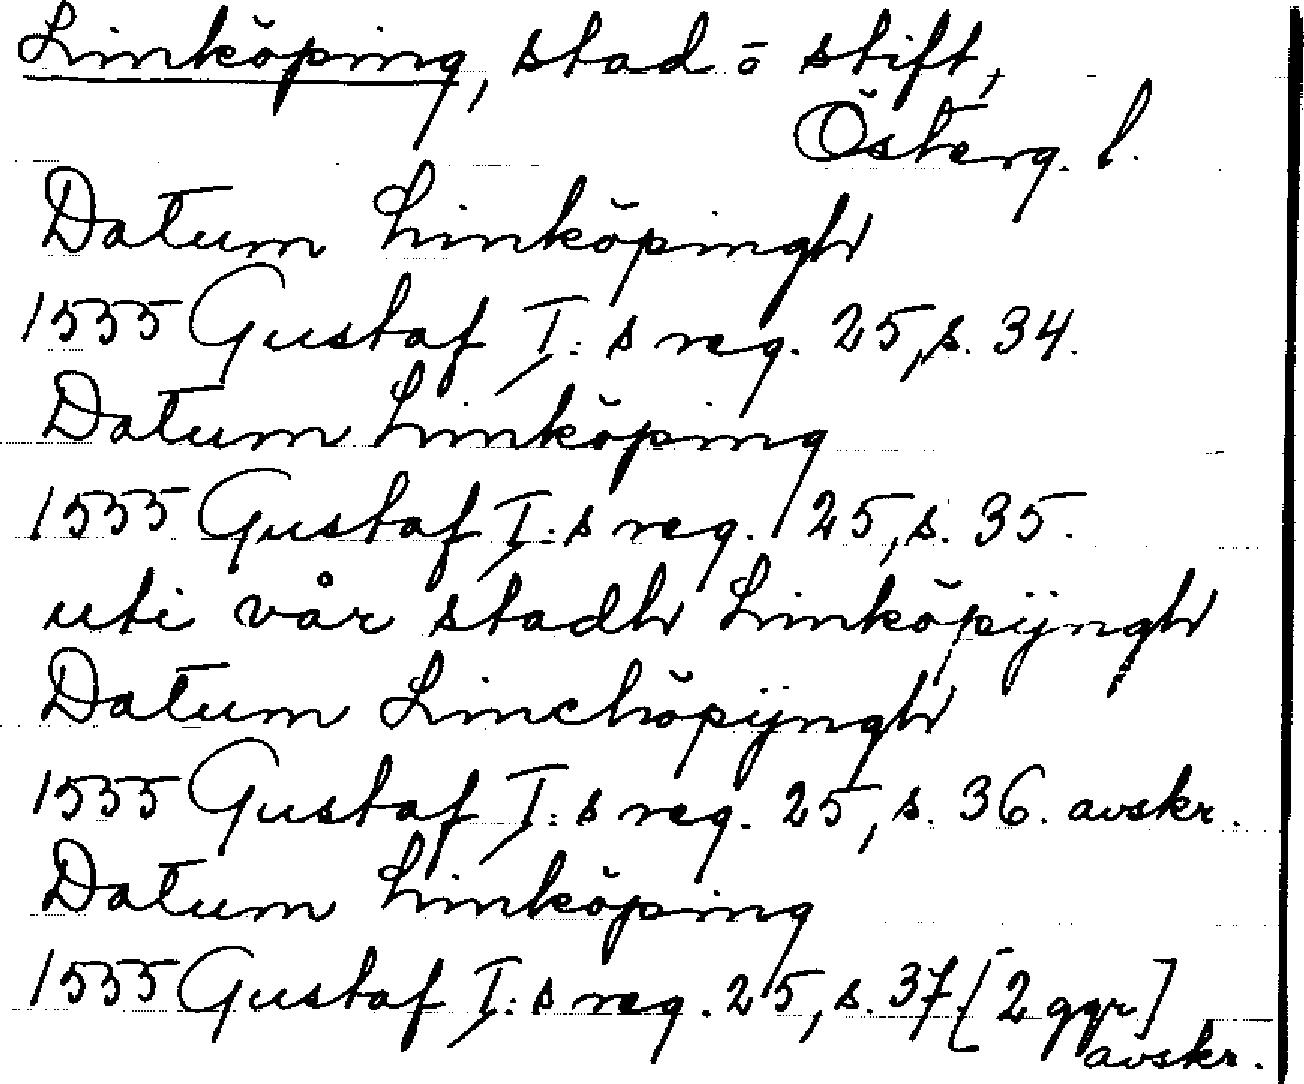 Linköping, stad o stift,
Österg. l.
Datum Linköpingh
1555 Gustaf I:s reg. 25, s. 34.
Datum Linköping
1555 Gustaf I:s reg. 25, s. 35.
uti vår stadh Linköpijngh
Datum Linchöpijngh
1555 Gustaf I:s reg. 25, s. 36. avskr.
Datum Linköping
1555 Gustaf I:s reg. 25, s. 37 [2 ggr]
avskr.